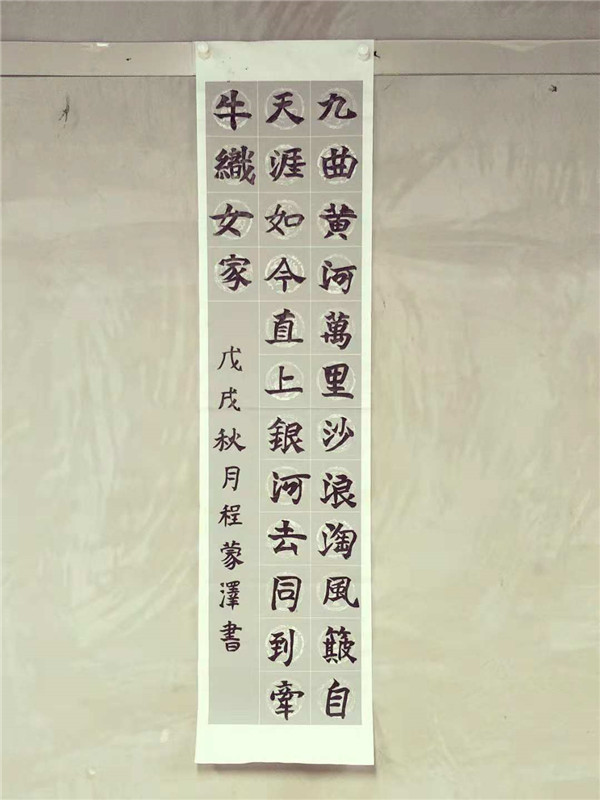 九曲黄河萬里沙浪淘風簸自
天涯如今直上銀河去同到牽
牛織女家
戊戌秋月程蒙澤書